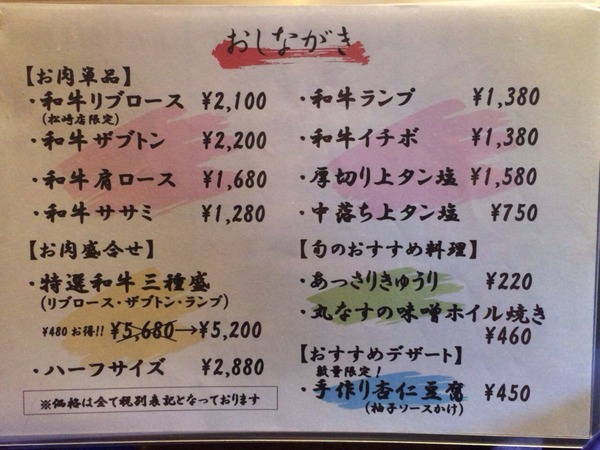 おしながき
【お肉単品】
・和牛リブロース ¥2,100
(松崎店限定)
・和牛ザブトン ¥2,200
・和牛肩ロース ¥1,680
・和牛ササミ ¥1,280
【お肉盛合せ】
・特選和牛三種盛
(リブロース・ザブトン・ランプ)
¥480お得!! ¥5,680→¥5,200
・ハーフサイズ ¥2,880
※価格は全て税別表記となっております
・和牛ランプ ¥1,380
・和牛イチボ ¥1,380
・厚切り上タン塩 ¥1,580
・中落ち上タン塩 ¥750
【旬のおすすめ料理】
・あっさりきゅうり ¥220
・丸なすの味噌ホイル焼き
¥460
【おすすめデザート】
数量限定!
・手作り杏仁豆腐 ¥450
(柚子ソースかけ)